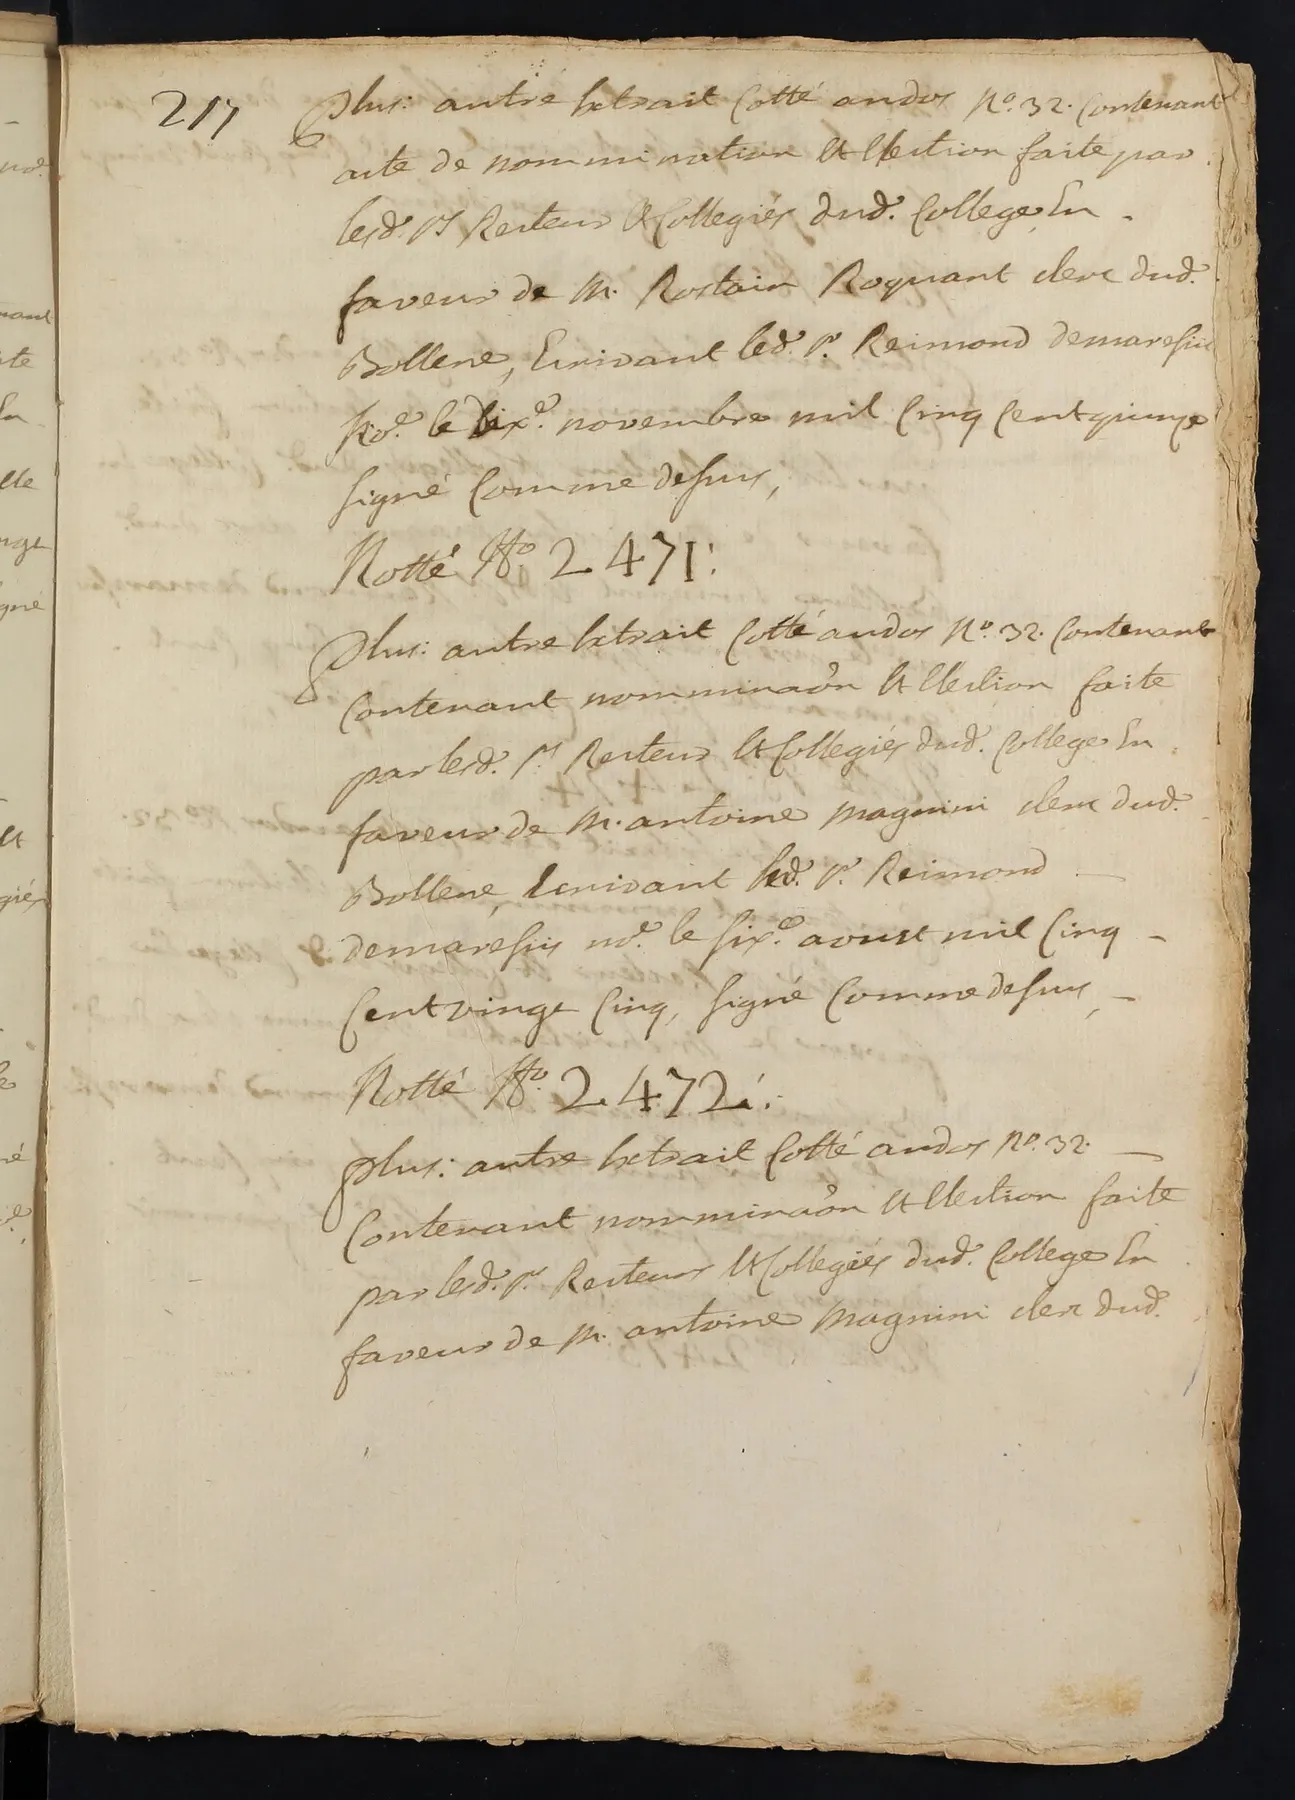 217
Plus: autre hetrait Cotté au dos N.º 32. Contenant
acte de nommination et ellection faite par
lesd. Srs Recteur et Collegiés dud. College En
faveur de M. Rostain Roquant clerc dud.
Bollene, Ecrivant led. Sr. Reimond demaresiis
No.e le dix.e novembre mil Cinq Cent quinze
signé Comme desus,
Notté N.º 2471:
Plus: autre hetrait Cotté au dos N.º 32. Contenant
Contenant nomminaôn et Ellection faite
par lesd. Srs Recteur et Collegiés dud. College En
faveur de M. antoine magnini clerc dud.
Bollene, Ecrivant led. Sr. Reimond
demaresiis no.e le six.e aoust mil Cinq
Cent vingt Cinq, signé Comme desus,
Notté N.º 2472:
Plus: autre hetrait Cotté au dos N.º 32.
Contenant nomminaôn et Ellection faite
par lesd. Srs Recteurs et Collegiés dud. College En
faveur de M. antoine magnini clerc dud.